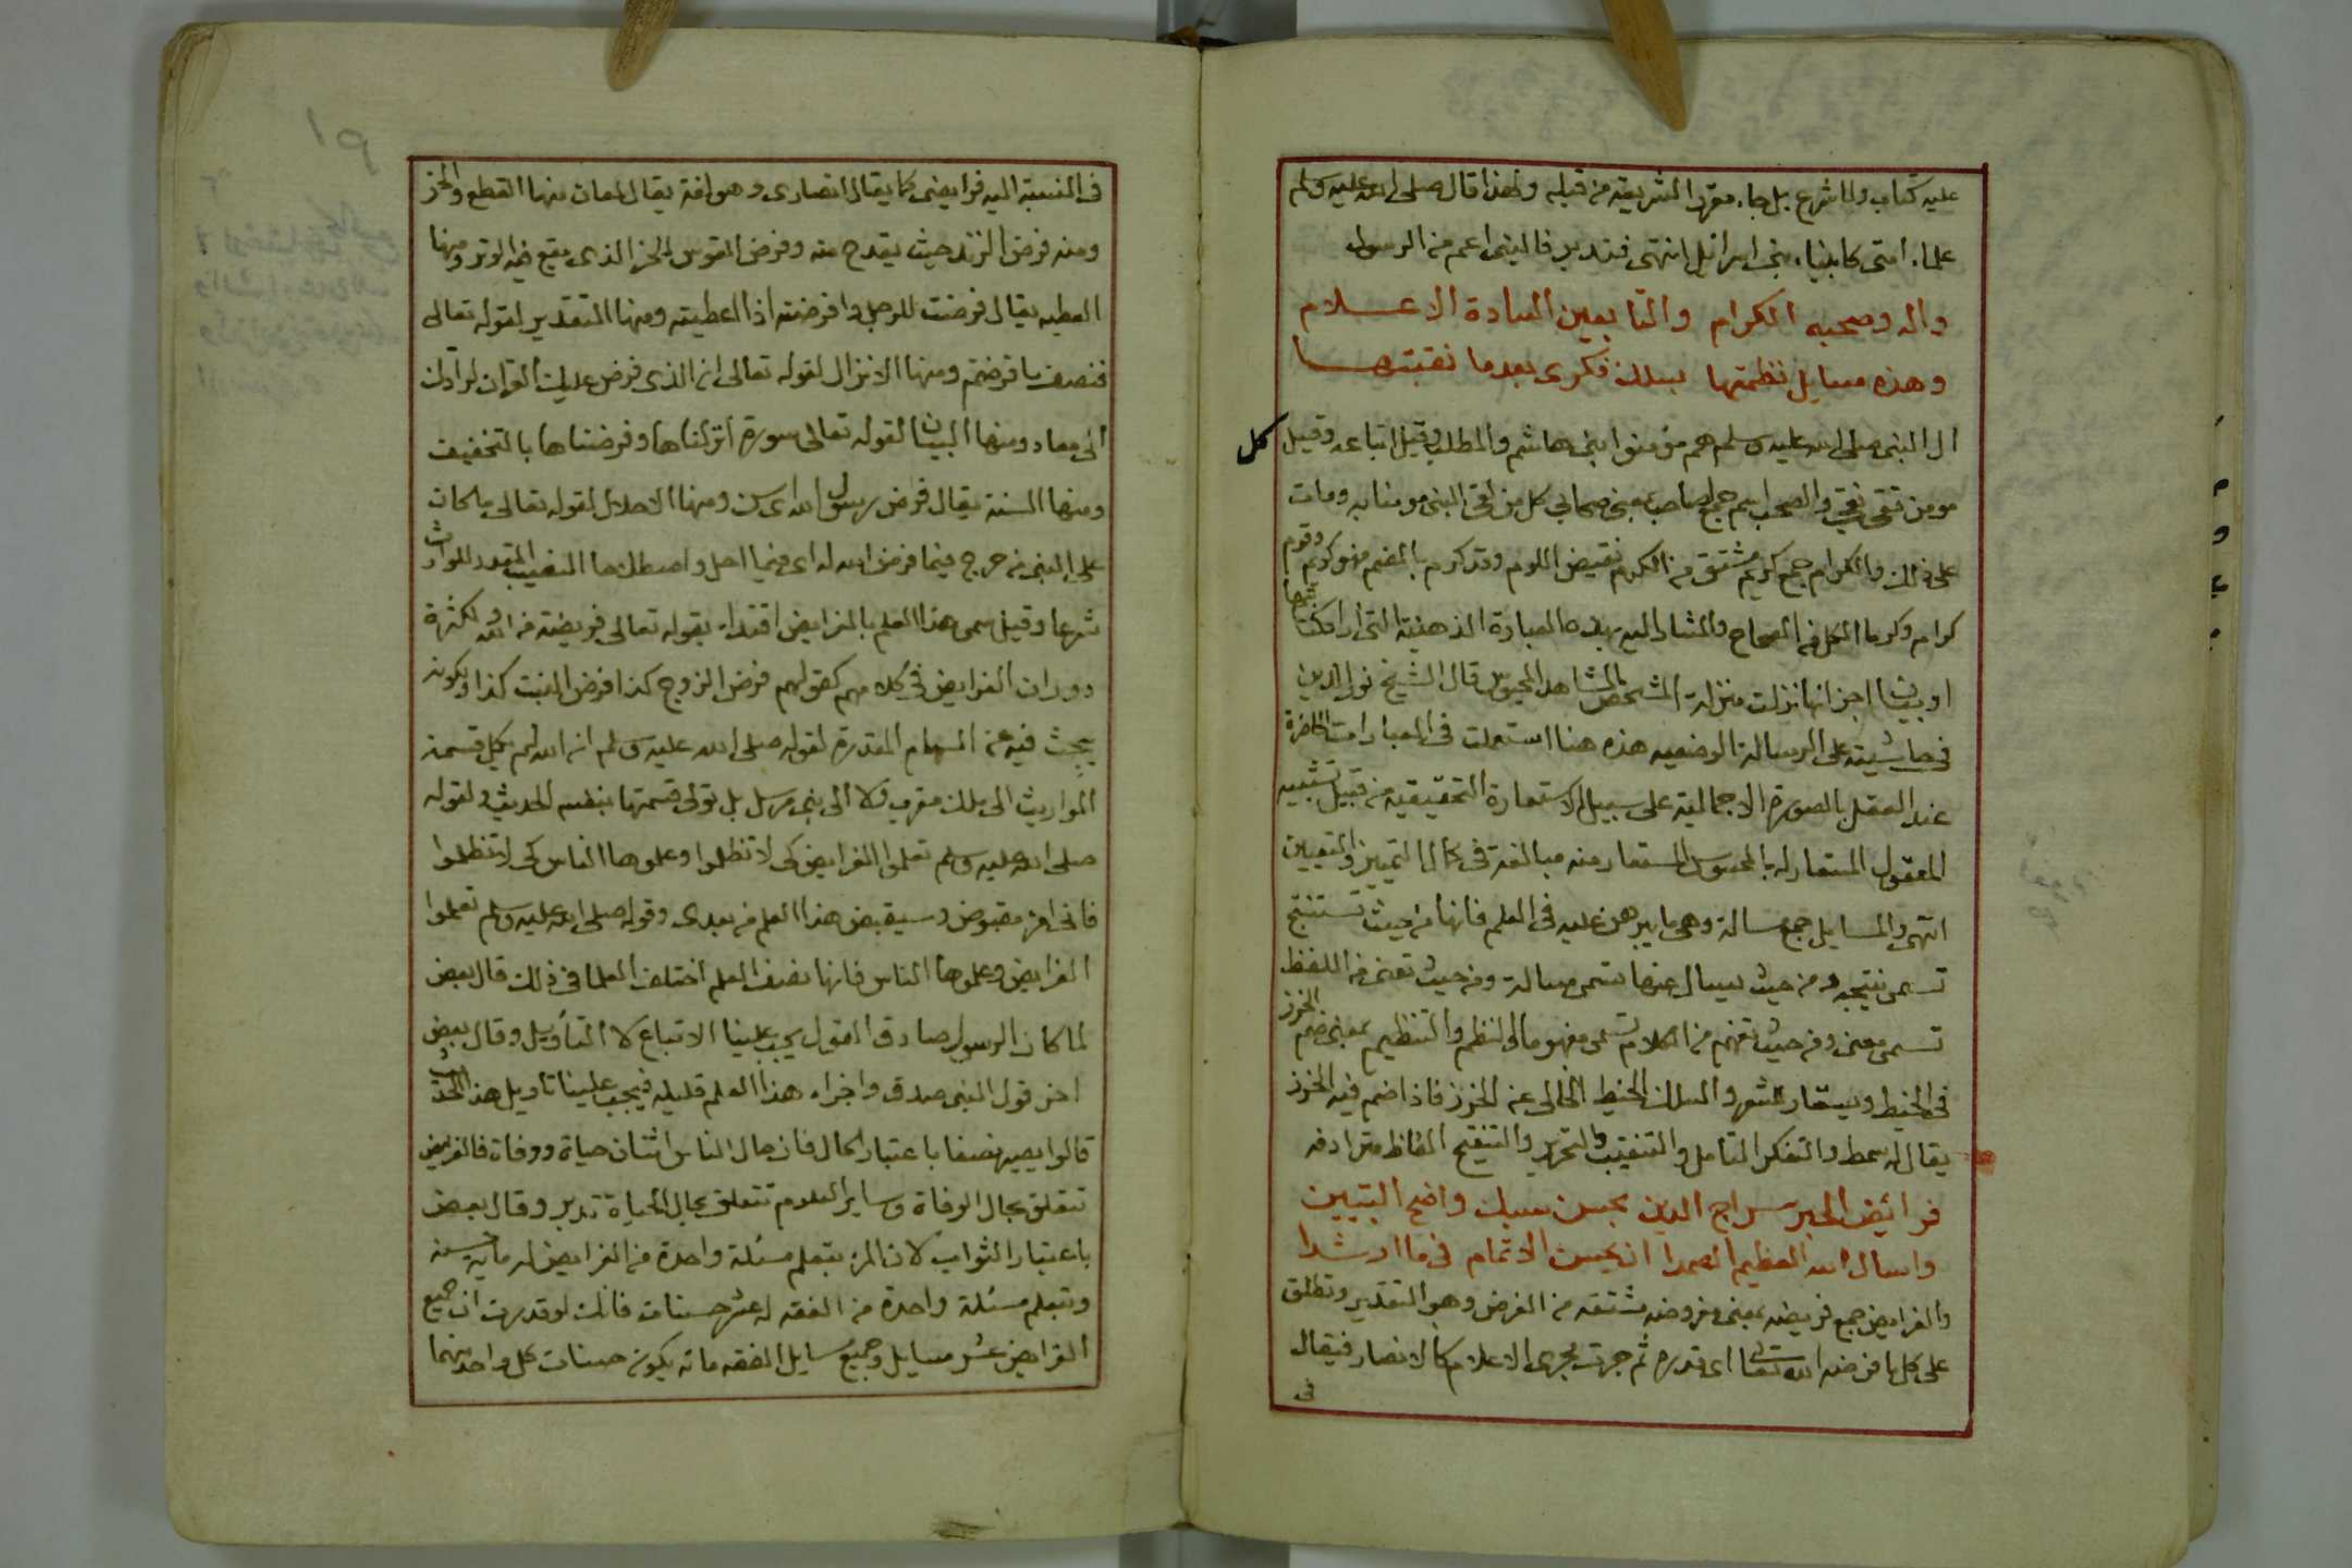 عليه كتاب ولا شرع بل جاء مقررا لشريعة من قبله ولهذا قال صلى الله عليه وسلم
علماء امتى كانبياء بنى اسرائيل انتهى فتدبر فالنبى اعم من الرسول
واله وصحبه الكرام والتابعين السادة الاعلام
وهذه مسايل نظمتها بسلك فكرى بعد ما نقبتها
ال النبى صلى الله عليه وسلم هم مؤمنوا بنى هاشم والمطلب وقيل اتباعه وقيل كل
مومن تقى نقي والصحب اسم جمع لصاحب بمعنى صحابي كل من لقى النبى مومنا به ومات
على ذلك والكرام جمع كريم مشتق من الكرم نقيض اللوم وقد كرم بالضم فهو كريم وقوم
كرام وكرما الكل فى الصحاح والمشار اليه بهذه العبارة الذهنية التى اراد كتابتها
او بيان اجزائها نزلت منزلة المشخص المشاهد المحسوس قال الشيخ نور الدين
فى حاشيته على الرسالة الوضعيه هذه هنا استعملت فى العبارات الحاضرة
عند العقل بالصورة الاجمالية على سبيل الاستعارة التحقيقية من قبيل تشبيه
المعقول المستعار له بالمحسوس المستعار منه مبالغة فى كمال التمييز والتعيين
انتهى والمسايل جمع مسالة وهى ما يبرهن عليه فى العلم فانها من حيث تستنتج
تسمى نتيجه ومن حيث يسال عنها تسمى مسالة ومن حيث تعنى من اللفظ
تسمى معنى ومن حيث تفهم من الكلام تسمى مفهوما والنظم والتنظيم بمعنى ضم الخرز
فى الخيط ويستعار للشعر والسلك الخيط الخالى عن الخرز فاذا ضم فيه الخرز
يقال له سمط والتفكر التامل والتنقيب والتحرير والتنقيح الفاظ مترادفه
فرائض الحبر سراج الدين بحسن سبك واضح التبيين
واسال الله العظيم الصمدا ان يحسن الاتمام فى ما ارشدا
والفرايض جمع فريضه بمعنى مفروضه مشتقه من الفرض وهو التقدير وتطلق
على كل ما فرضه الله تعالى اى قدره ثم جرت مجرى الاعلام كالانصار فيقال
فى
فى النسبة اليه فرايضى كما يقال انصارى وهو لغة يقال لمعان منها القطع والحز
ومنه فرض الزند حيث يقدح منه وفرض القوس الحز الذى يقع فيه الوتر ومنها
العطيه يقال فرضت للرجل وافرضته اذا اعطيته ومنها التقدير لقوله تعالى
فنصف ما فرضتم ومنها الانزال لقوله تعالى ان الذى فرض عليك القران لرادك
الى معاد ومنها البيان لقوله تعالى سورة انزلناها وفرضناها بالتخفيف
ومنها السنة يقال فرض رسول الله اى سن ومنها الاحلال لقوله تعالى ما كان
على النبى من حرج فيما فرض الله له اى فيما احل واصطلاحا النصيب المقدر للوارث
شرعا وقيل سمى هذا العلم بالفرايض اقتداء بقوله تعالى فريضة من الله ولكثرة
دوران الفرايض فى كلامهم كقولهم فرض الزوج كذا فرض البنت كذا ولكونه
يبحث فيه عن السهام المقدرة لقوله صلى الله عليه وسلم ان الله لم يكل قسمة
المواريث الى ملك مقرب ولا الى نبى مرسل بل تولى قسمتها بنفسه الحديث ولقوله
صلى الله عليه وسلم تعلموا الفرايض كى لا تظلوا وعلموها الناس كى لا تظلموا
فانى امرء مقبوض وسيقبض هذا العلم من بعدى وقوله صلى الله عليه وسلم تعلموا
الفرايض وعلموها الناس فانها نصف العلم اختلف العلما فى ذلك قال بعض
لما كان الرسول صادق القول يجب علينا الاتباع لا التاويل وقال بعض
اخر قول النبى صدق واجراء هذا العلم قليله فيجب علينا تاويل هذا الحديث
قالوا يصير نصفا باعتبار الحال فان حال الناس اثنان حياة ووفاة فالفرايض
تتعلق بحال الوفاة وساير العلوم تتعلق بحال الحياة تدبر وقال بعض
باعتبار الثواب لان المرء بتعلم مسئلة واحدة من الفرايض له ماية حسنة
وبتعلم مسئلة واحدة من الفقه له عشر حسنات فانك لو قدرت ان جميع
الفرايض عشر مسايل وجميع مسايل الفقه مائه يكون حسنات كل واحد منهما